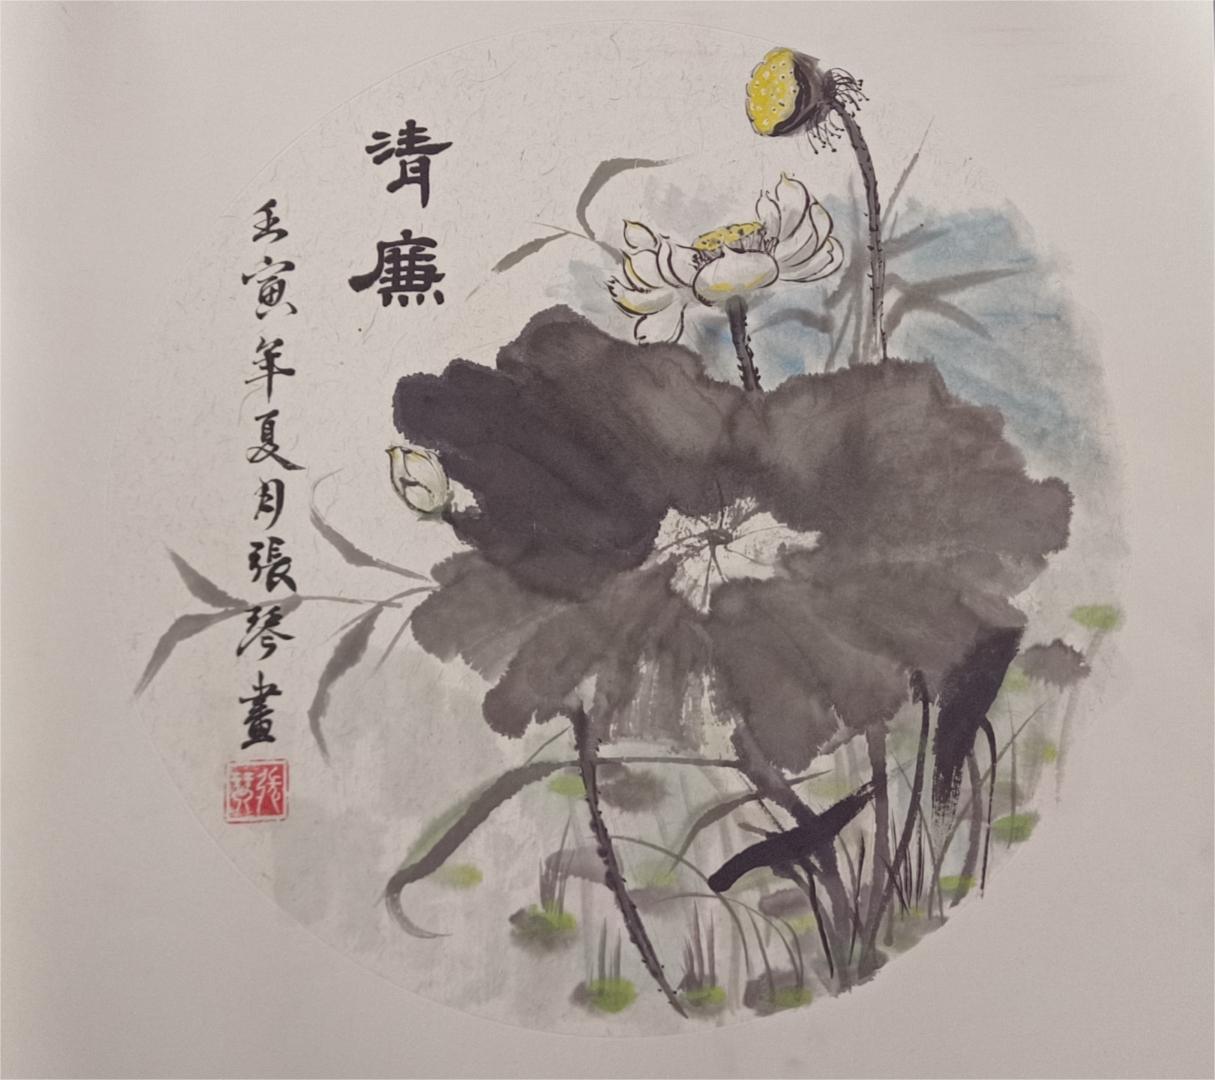 清廉
壬寅年夏月張琴畫